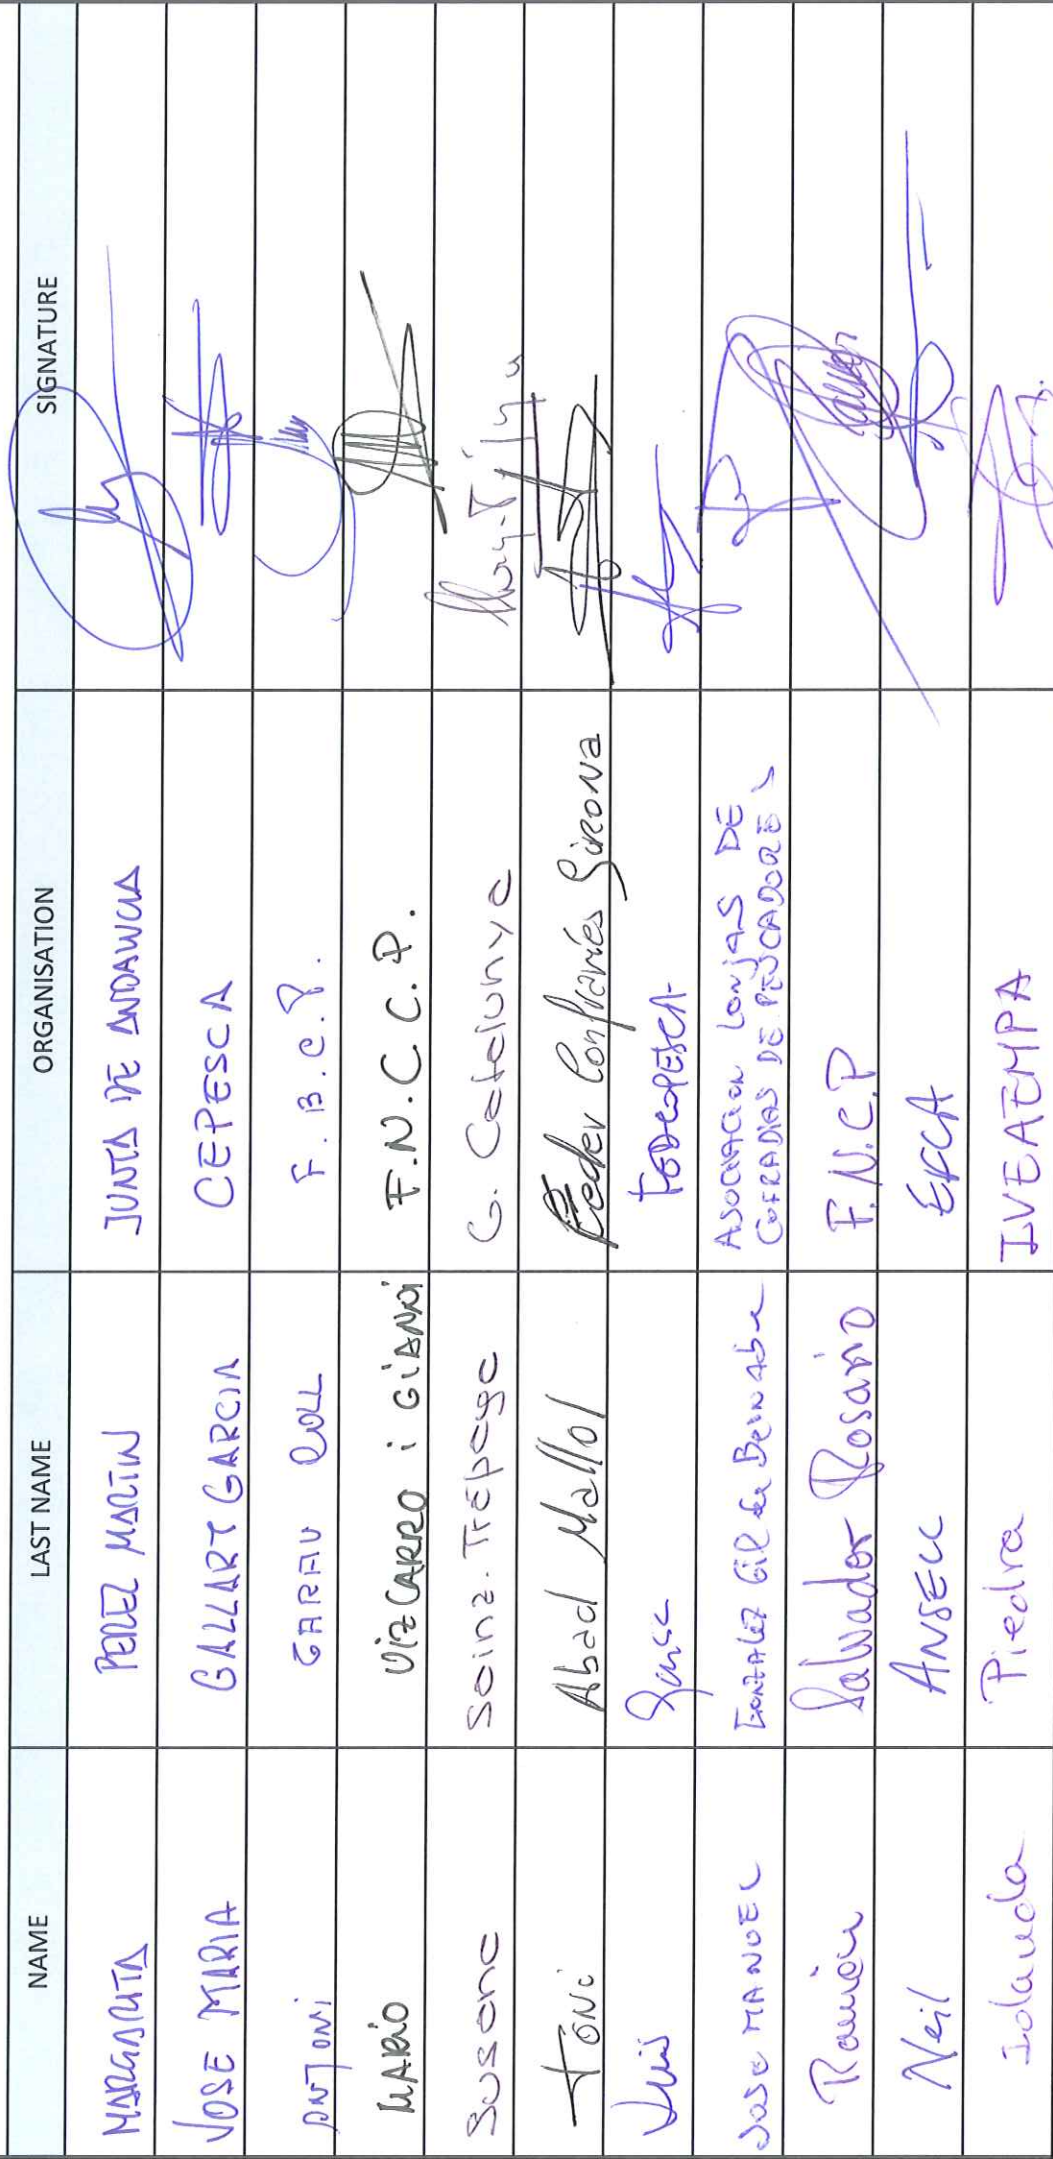 NAME LAST NAME ORGANISATION SIGNATURE
MARGARITA PEREZ MARTIN JUNTA DE ANDALUCIA
JOSE MARIA GALLART GARCIA CEPESCA
ANTONI GARAU COLL F.B.C.P.
MARIO VIZCARRO i GIANNI F.N.C.C.P.
Susana Sainz-Trápaga G. Catalunya
TONi Abad Mallol Feder Confraries Girona
Luis FEDCOPESCA
JOSE MANUEL GONZALEZ Gil de Bernabe ASOCIACION LONJAS DE
COFRADIAS DE PESCADORES
Ramón Salvador Rosario F.N.C.P
Neil ANSELL EFCA
Iolanda Piedra IVEAEMPA